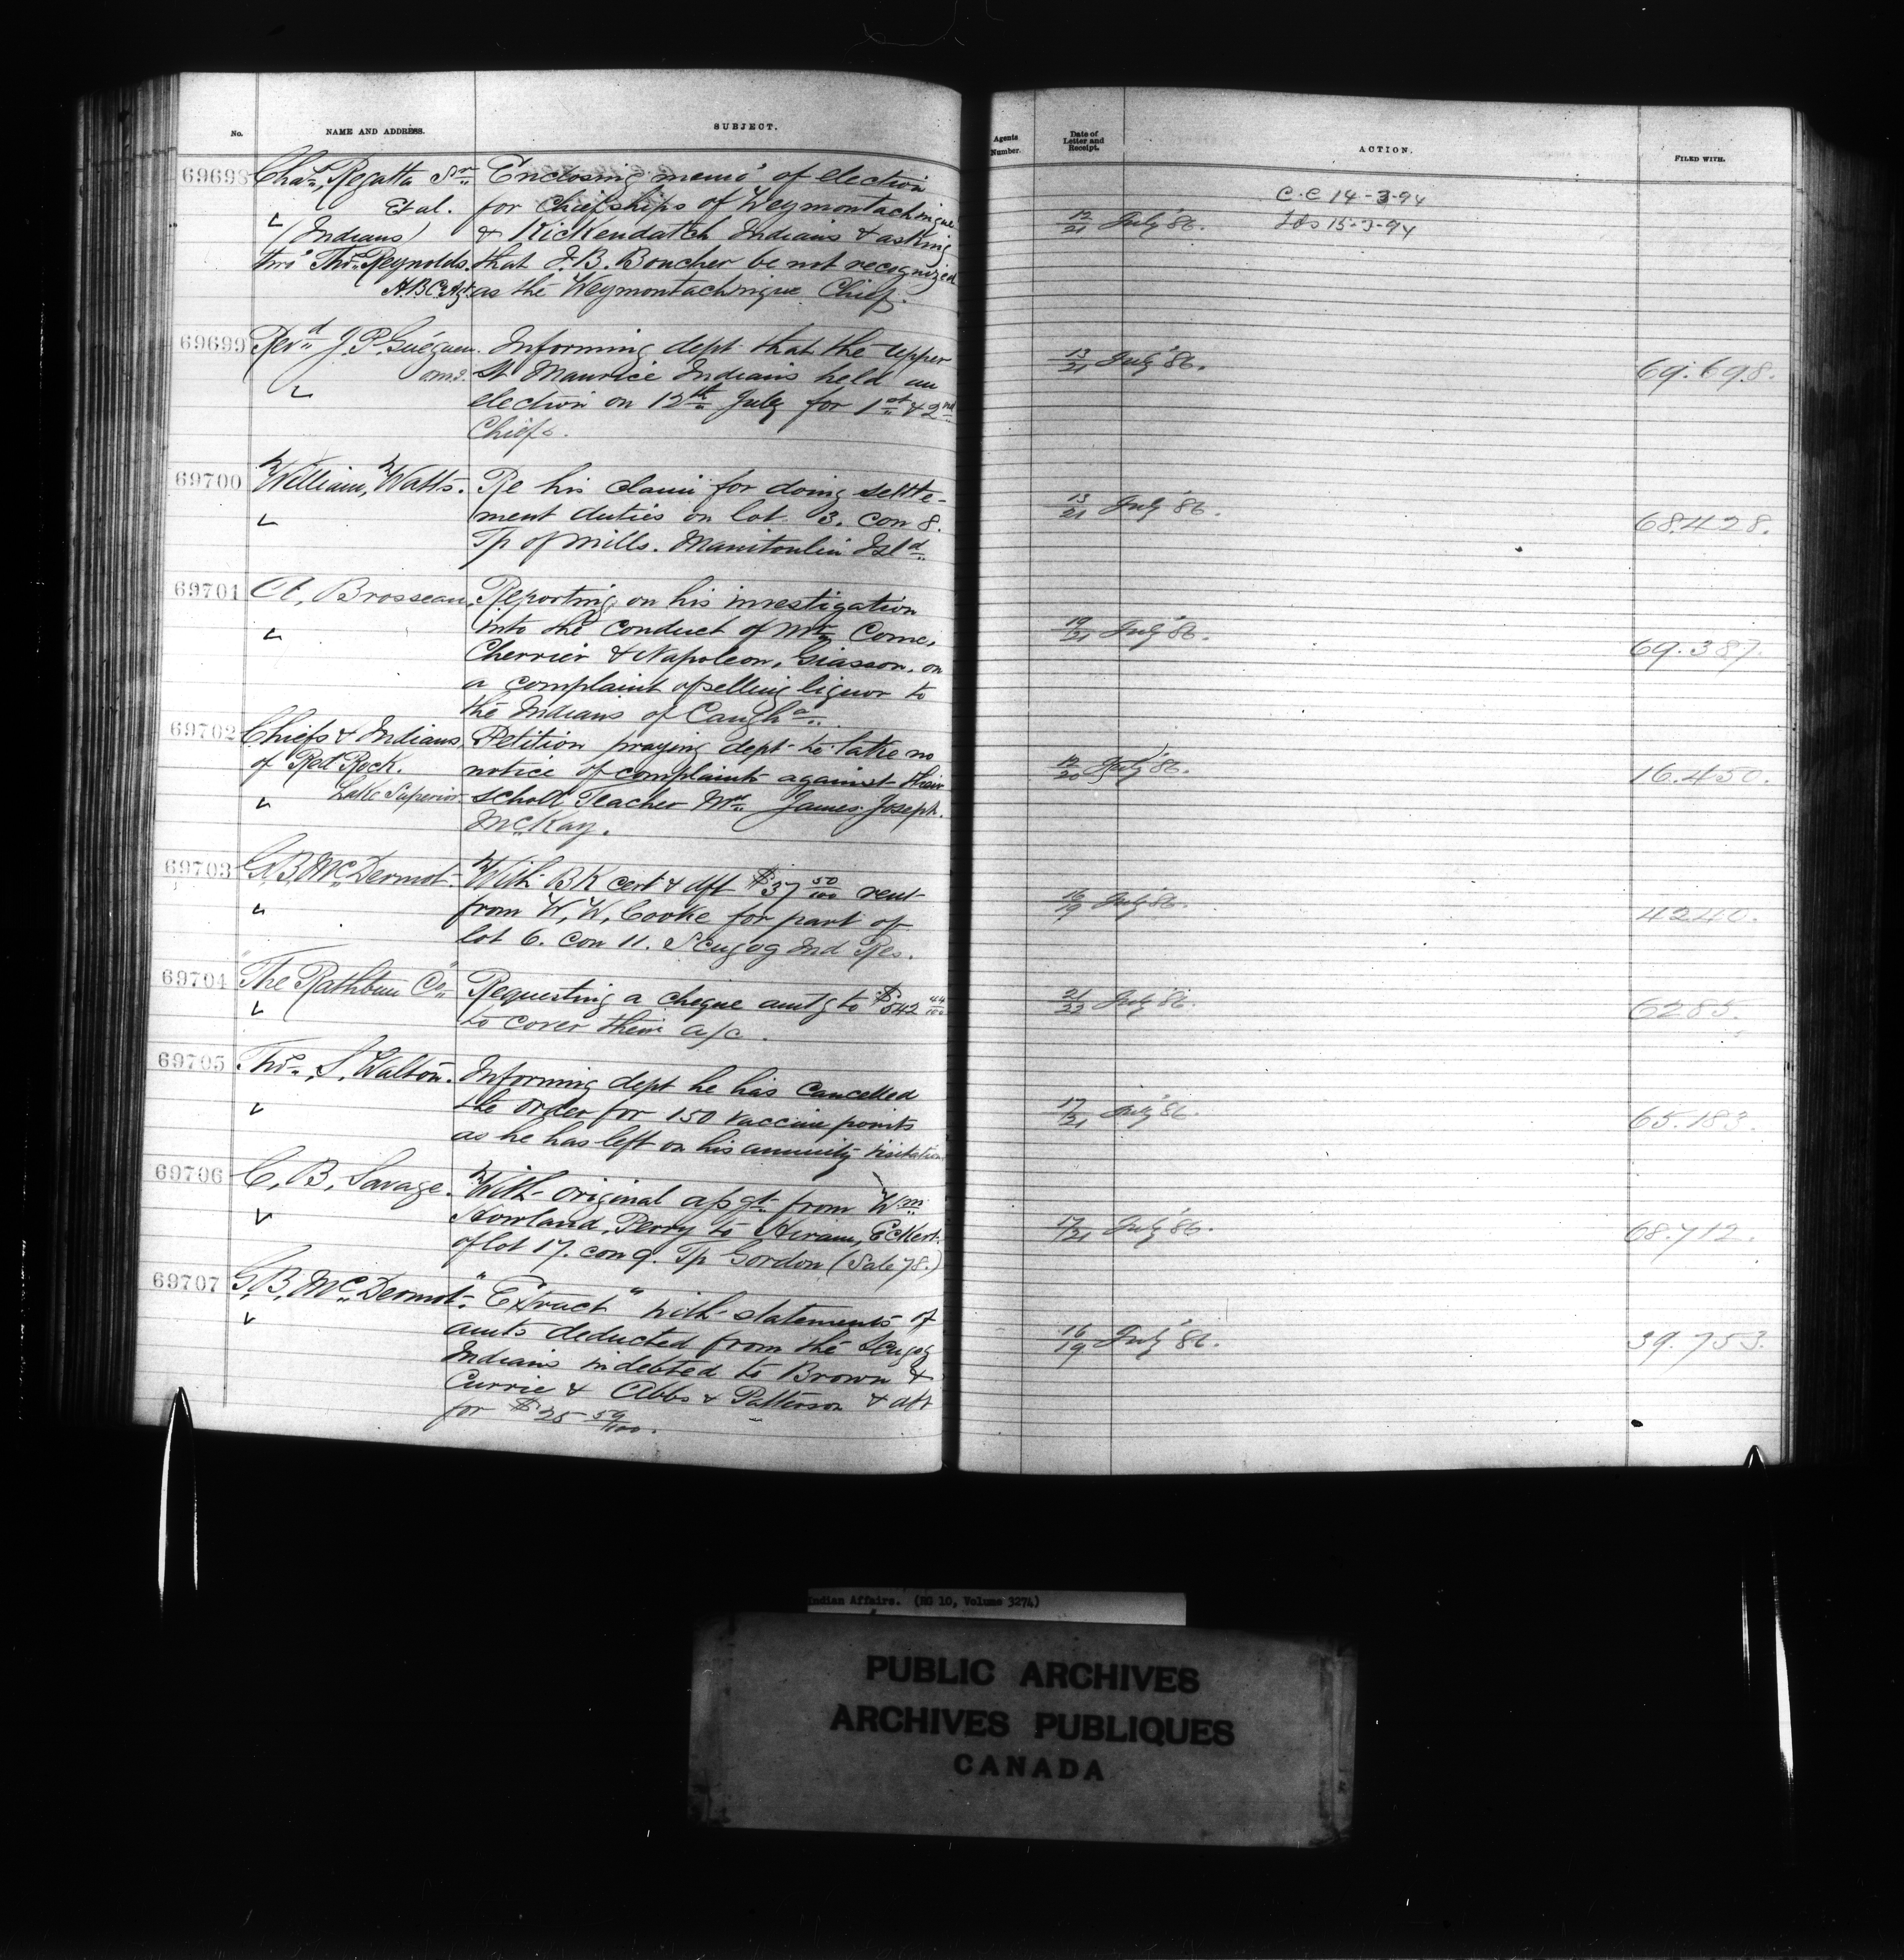 No. NAME AND ADDRESS. SUBJECT.
69698 Chas. Regatta Sr. Enclosing memo' of election
Et al. for chiefships of Weymontachingue
(Indians) & Kickendatch Indians & asking
thro' Thos. Reynolds. that J. B. Boucher be not recognized
H.B.C. Agt. as the Weymontachingue Chief.
69699 Revd. J. P. Guéguen. Informing dept that the Upper
o.m.i. St Maurice Indians held an
election on 12th July for 1st & 2nd
Chiefs.
69700 William, Watts. Re his claim for doing settle-
ment duties on lot 3. con 8.
Tp of Mills. Manitoulin Isld.
69701 A. Brosseau. Reporting on his investigation
into the conduct of Mr. Come,
Cherrier & Napoleon, Giasson, on
a complaint of selling liquor to
the Indians of Caugha.
69702 Chiefs & Indians Petition praying dept to take no
of Red Rock. notice of complaints against their
Lake Superior scholl Teacher Mr. James Joseph.
McKay.
69703 G. B. McDermot. With BK cert & dft $37 50/100 rent
from W. W. Cooke for part of
lot 6. con 11. Scugog Ind Res.
69704 "The Rathbun Co" Requesting a cheque amtg to $542 44/100
to cover their a/c.
69705 Thos. S. Walton. Informing dept he has cancelled
the order for 150 vaccine points
as he has left on his annuity visitation
69706 C. B. Savage. With original assgt. from Wm.
Howland, Perry to Hiram, Eckert.
of lot 17. con 9. Tp Gordon (Sale 78.)
69707 G. B. McDermot. "Extract" with statements of
amts deducted from the Scugog
Indians indebted to Brown &
Currie & Abbs & Patterson & dft
for $25 59/100.
Agents Number. Date of Letter and Receipt. ACTION. FILED WITH.
C.C 14-3-94
12/21 July '86. 15-3-94
13/21 July '86. 69.698.
13/21 July '86. 68.428.
19/21 July '86. 69.387.
12/20 July '86. 16.450.
16/19 July '86. 4240.
21/22 July '86. 6285.
17/21 July '86. 65.183.
17/21 July '86. 68.712.
16/19 July '86. 39.753.
Indian Affairs. (RG 10, Volume 3274)
PUBLIC ARCHIVES
ARCHIVES PUBLIQUES
CANADA